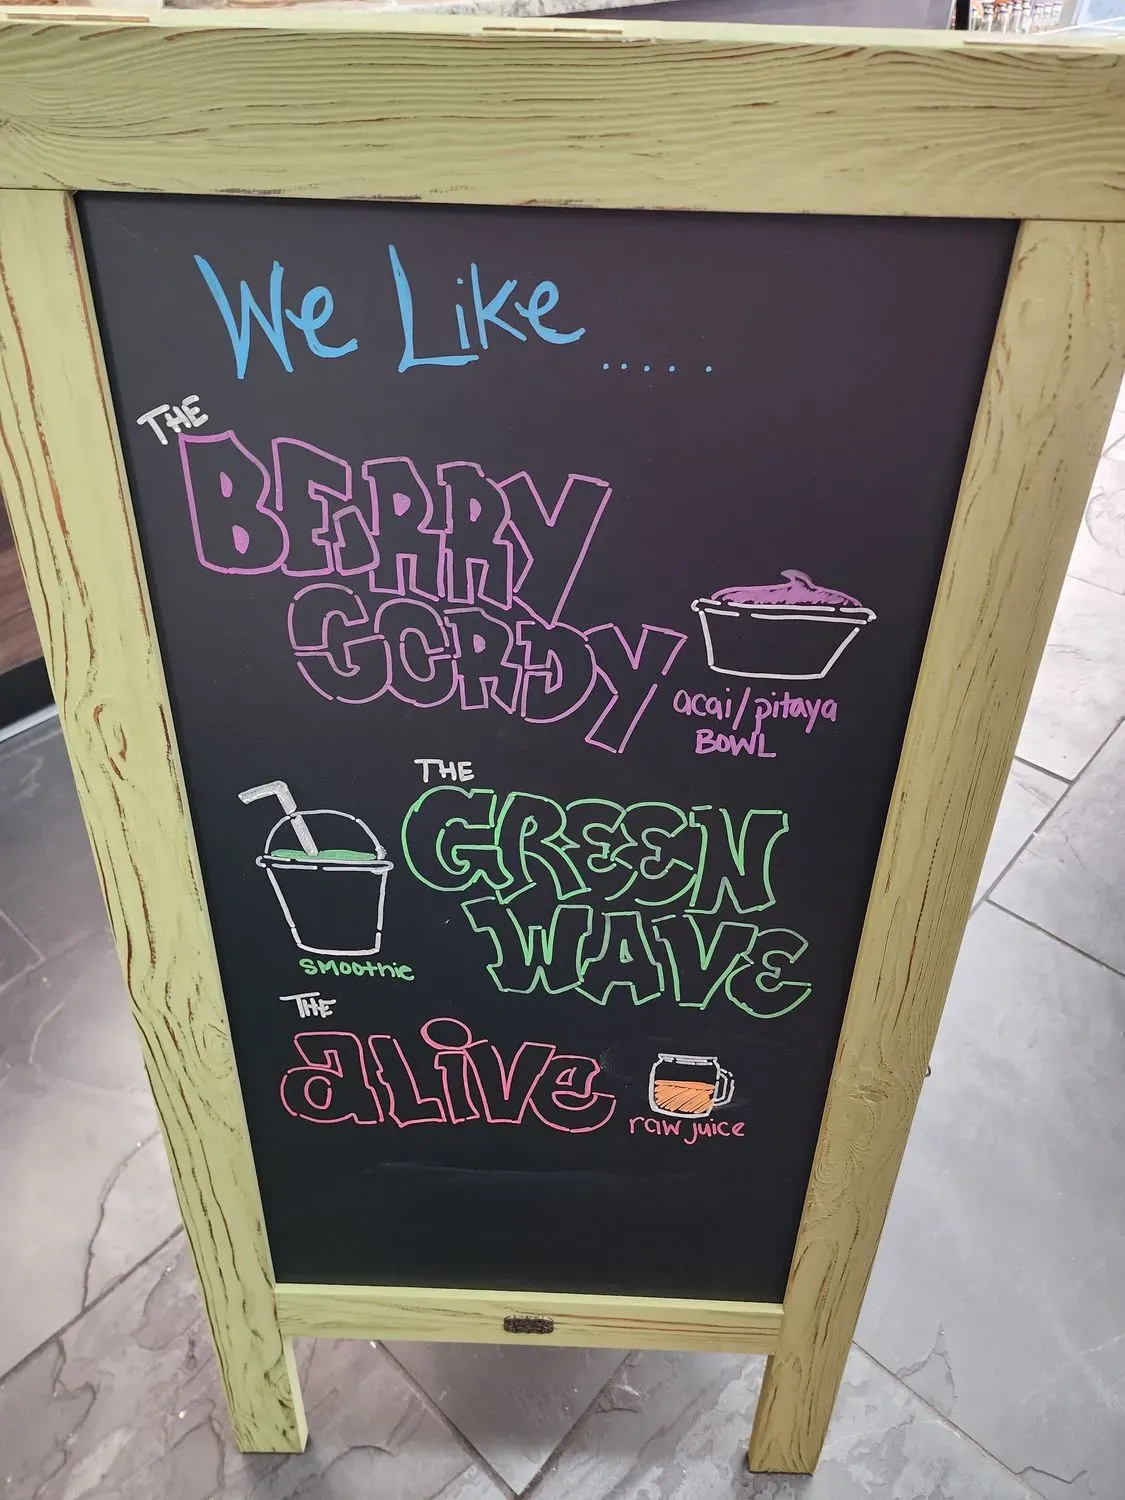 We Like .....
THE
BERRY
GORDY
acai/pitaya
BOWL
THE
GREEN
WAVE
smoothie
THE
aLive
raw juice